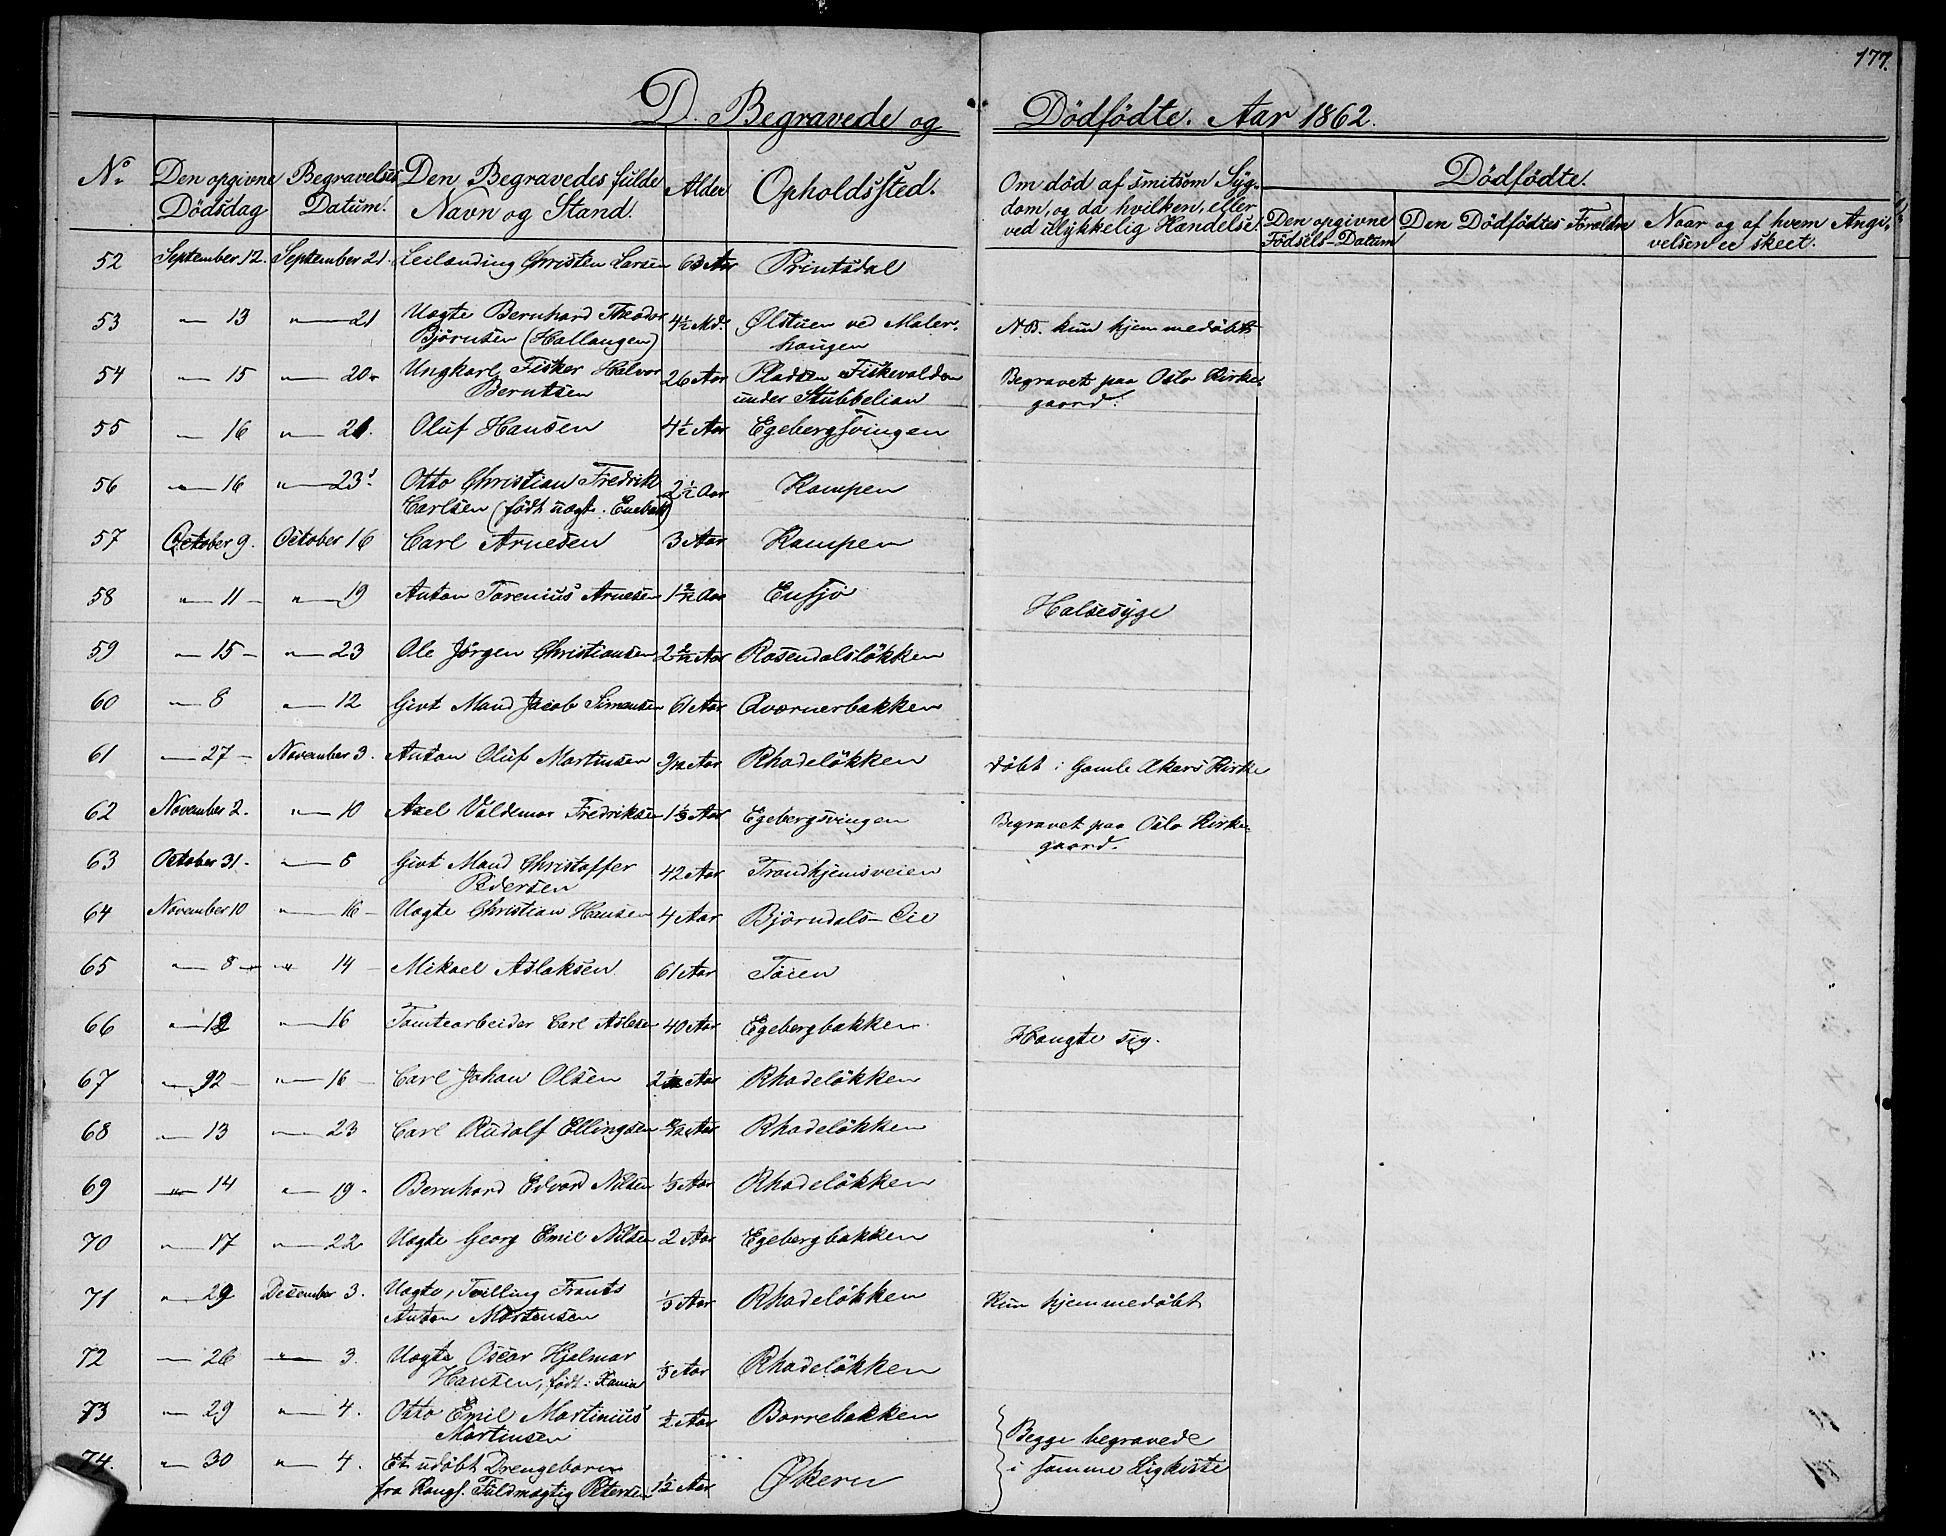 177.
D. Begravede og Dödfödte. Aar 1862.
No. Den opgivne Dödsdag Begravelses Datum. Den Begravedes fulde Navn og Stand. Alder Opholdssted. Om död af smitsom Sygdom, og da hvilken, eller ved ulykkelig Hændelse. Dödfödte.
Den opgivne Födsels-Datum Den Dödfödtes Forældre Naar og af hvem Angivelsen er skeet.
52 September 12. September 21. Leilænding Christen Larsen 63 Aar Printsdal
53 " 13 " 21 Uægte Bernhard Theodor
Björnsen (Hallangen) 4½ Md. Ølstuen ved Maler-
haugen N.B. kun hjemmedöbt
54 " 15 " 20. Ungkarl Fisker Halvor
Berntsen 26 Aar Pladsen Fiskevolden
under Stubbelian Begravet paa Oslo Kirke-
gaard.
55 " 16 " 21. Oluf Hansen 4½ Aar Egebergsvingen
56 " 16 " 23. Otto Christian Fredrik
Carlsen (födt uægt. Enebak) 2½ Aar Kampen
57 October 9. October 16 Carl Arnesen 3 Aar Kampen
58 " 11 " 19 Anton Torenius Arnesen Ensjo Halsesyge
59 " 15 " 23 Ole Jörgen Christiansen Rosendalslökken
60 " 8 " 12 Givt Mand Jacob Simensen 61 Aar Qværnerbakken
61 " 27 November 3. Anton Oluf Martinsen 9/12 Aar Rhodelökken döbt i Gamle Akers Kirke
62 November 2. " 10 Axel Valdemar Fredriksen 1⅓ Aar Egebergsvingen Begravet paa Oslo Kirke-
gaard.
63 October 31. " 6 Givt Mand Christoffer
Pedersen 42 Aar Trondhjemsveien
64 November 10 " 16 Uægte Christian Hansen 4 Aar Björndals-Eie
65 " 8 " 14 Mikael Aslaksen 61 Aar Töien
66 " 12 " 16 Tomtearbeider Carl Aslesen 40 Aar Egebergbakken Hængte sig.
67 " 12 " 16 Carl Johan Olsen Aar Rhodelökken
68 " 13 " 23 Carl Rudolf Ellingsen Aar Rhodelökken
69 " 14 " 19. Bernhard Edvard Nilsen ⅓ Aar Rhodelökken
70 " 17 " 22 Uægte Georg Emil Nilsen 2 Aar Egebergbakken
71 " 29 Desember 3. Uægte, Tvilling Frants
Anton Mortensen ⅓ Aar Rhodelökken Kun hjemmedöbt
72 " 26 " 3. Uægte Oscar Hjalmar
Hansen, födt i Xania ⅓ Aar Rhodelökken
73 " 29 " 4. Otto Emil Martinius
Martinsen ½ Aar Borrebakken Begge begravede
i samme Ligkiste
74. " 30 " 4. Et udöbt Drengebarn
fra Kongs. Fuldmægtig Petersen 1½ Aar Økern